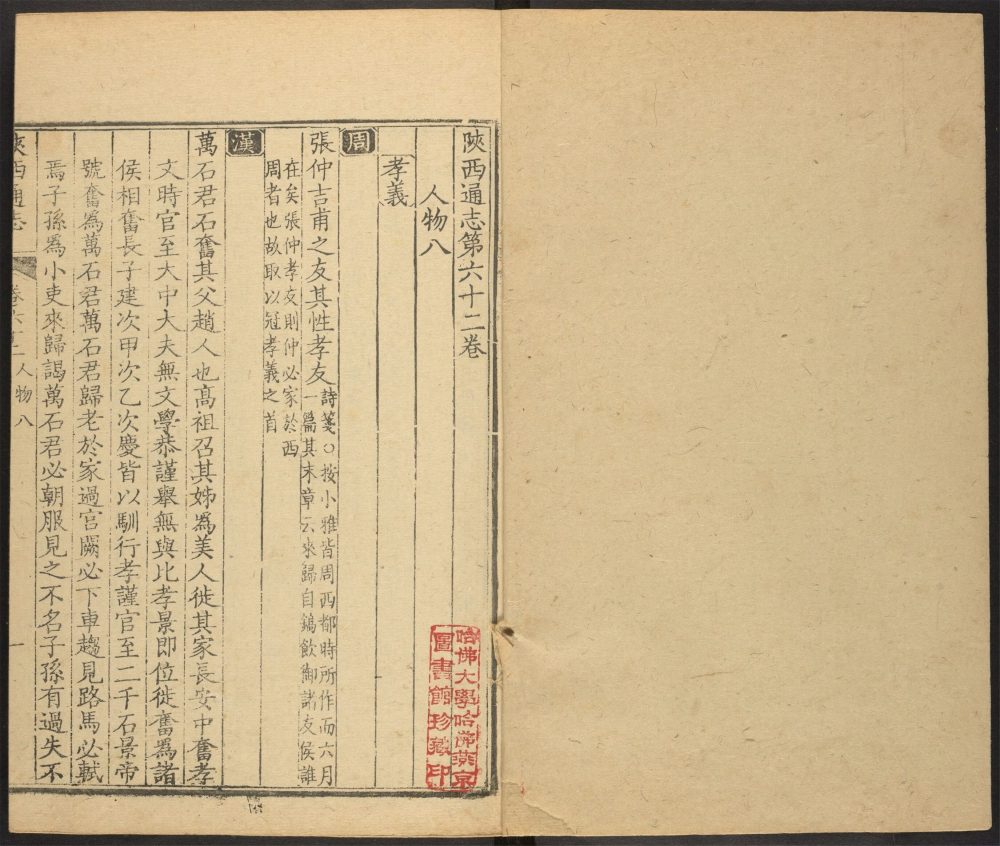 陝西通志第六十二卷
人物八
孝義
周
張仲吉甫之友其性孝友詩箋○按小雅皆周西都時所作而六月
一篇其末章云來歸自鎬飲御諸友侯誰
在矣張仲孝友則仲必家於西
周者也故取以冠孝義之首
漢
萬石君石奮其父趙人也高祖召其姊爲美人徙其家長安中奮孝
文時官至大中大夫無文學恭謹舉無與比孝景即位徙奮爲諸
侯相奮長子建次甲次乙次慶皆以馴行孝謹官至二千石景帝
號奮爲萬石君萬石君歸老於家過宮闕必下車趨見路馬必軾
焉子孫爲小吏來歸謁萬石君必朝服見之不名子孫有過失不
陝西通志
卷六十二 人物八
一
哈佛大學哈佛燕京
圖書館珍藏印